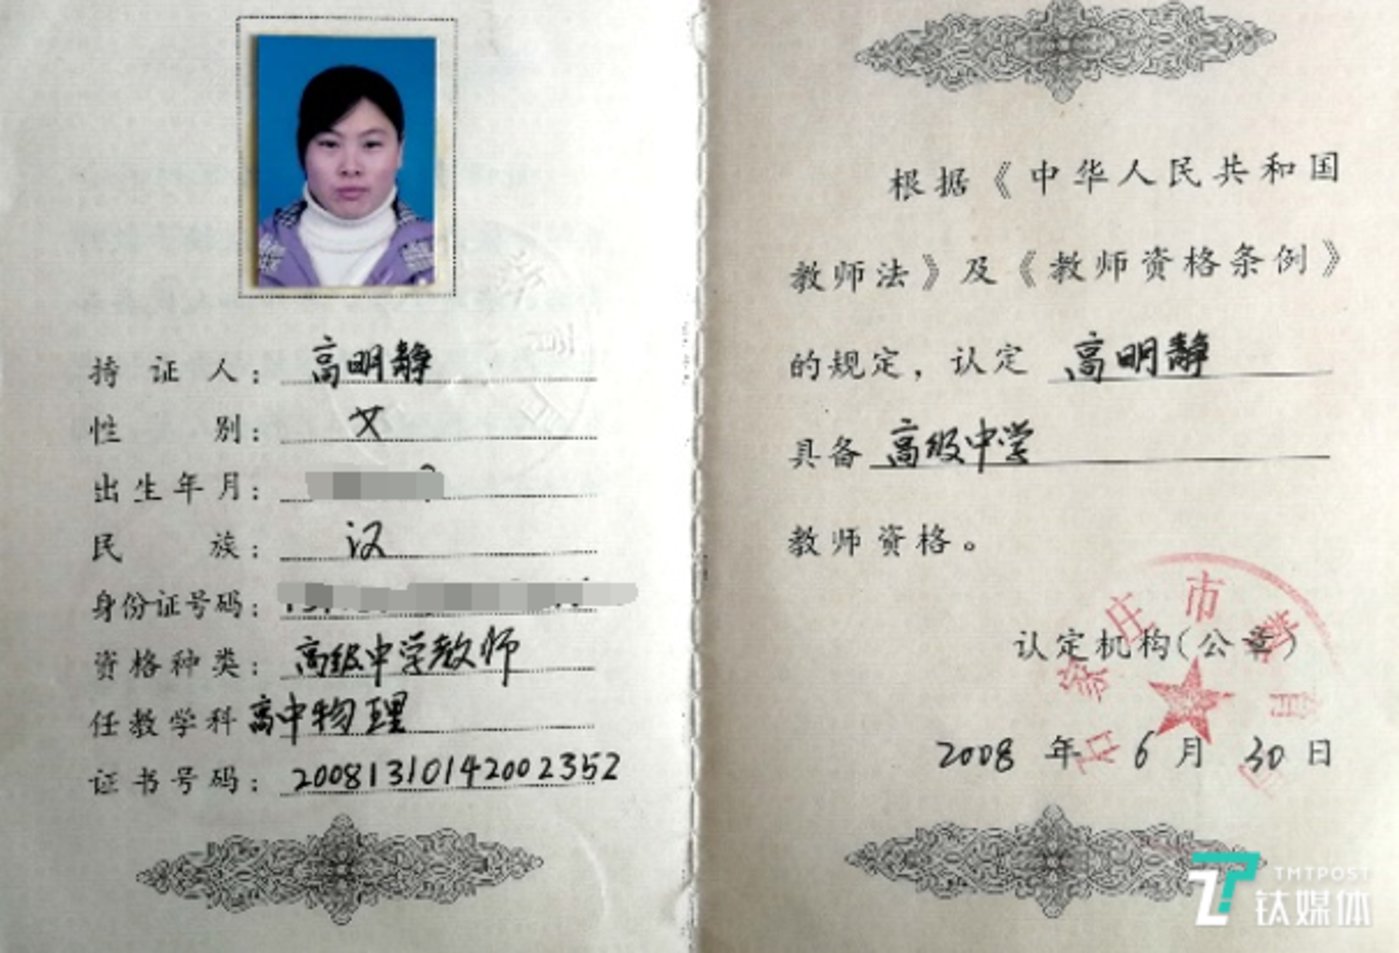 持证人：高明静
性别：女
出生年月：
民族：汉
身份证号码：
资格种类：高级中学教师
任教学科 高中物理
证书号码：20081310142002352
根据《中华人民共和国
教师法》及《教师资格条例》
的规定，认定 高明静
具备 高级中学
教师资格。
认定机构(公章)
石家庄市教育局
2008 年 6 月 30 日
TMTPOST
钛媒体